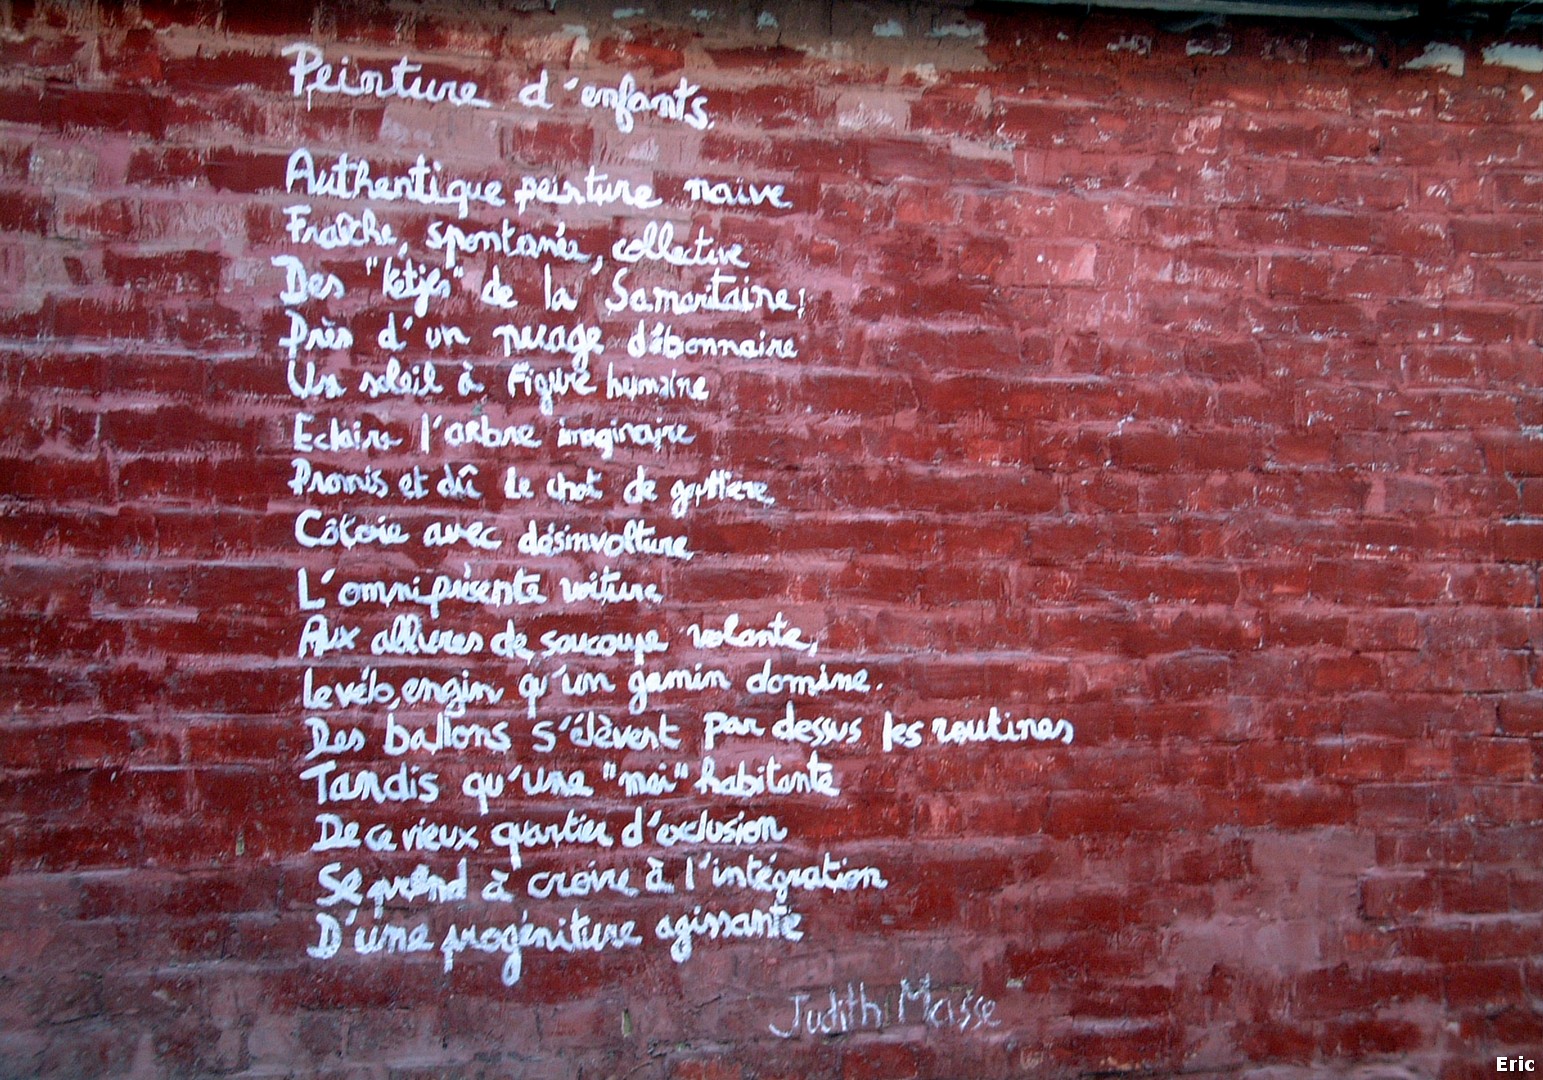 Peinture d'enfants.
Authentique peinture naive
Fraîche, spontanée, collective
Des "kétjes" de la Samaritaine!
Près d'un nuage débonnaire
Un soleil à Figure humaine
Eclaire l'arbre imaginaire
Promis et dû le chat de gouttière
Côtoie avec désinvolture
L'omniprésente voiture
Aux allures de soucoupe volante,
Le vélo, engin qu'un gamin domine.
Des ballons s'élèvent par dessus les routines
Tandis qu'une "moi" habitante
De ce vieux quartier d'exclusion
Se prend à croire à l'intégration
D'une progéniture agissante
Judith Masse
Eric